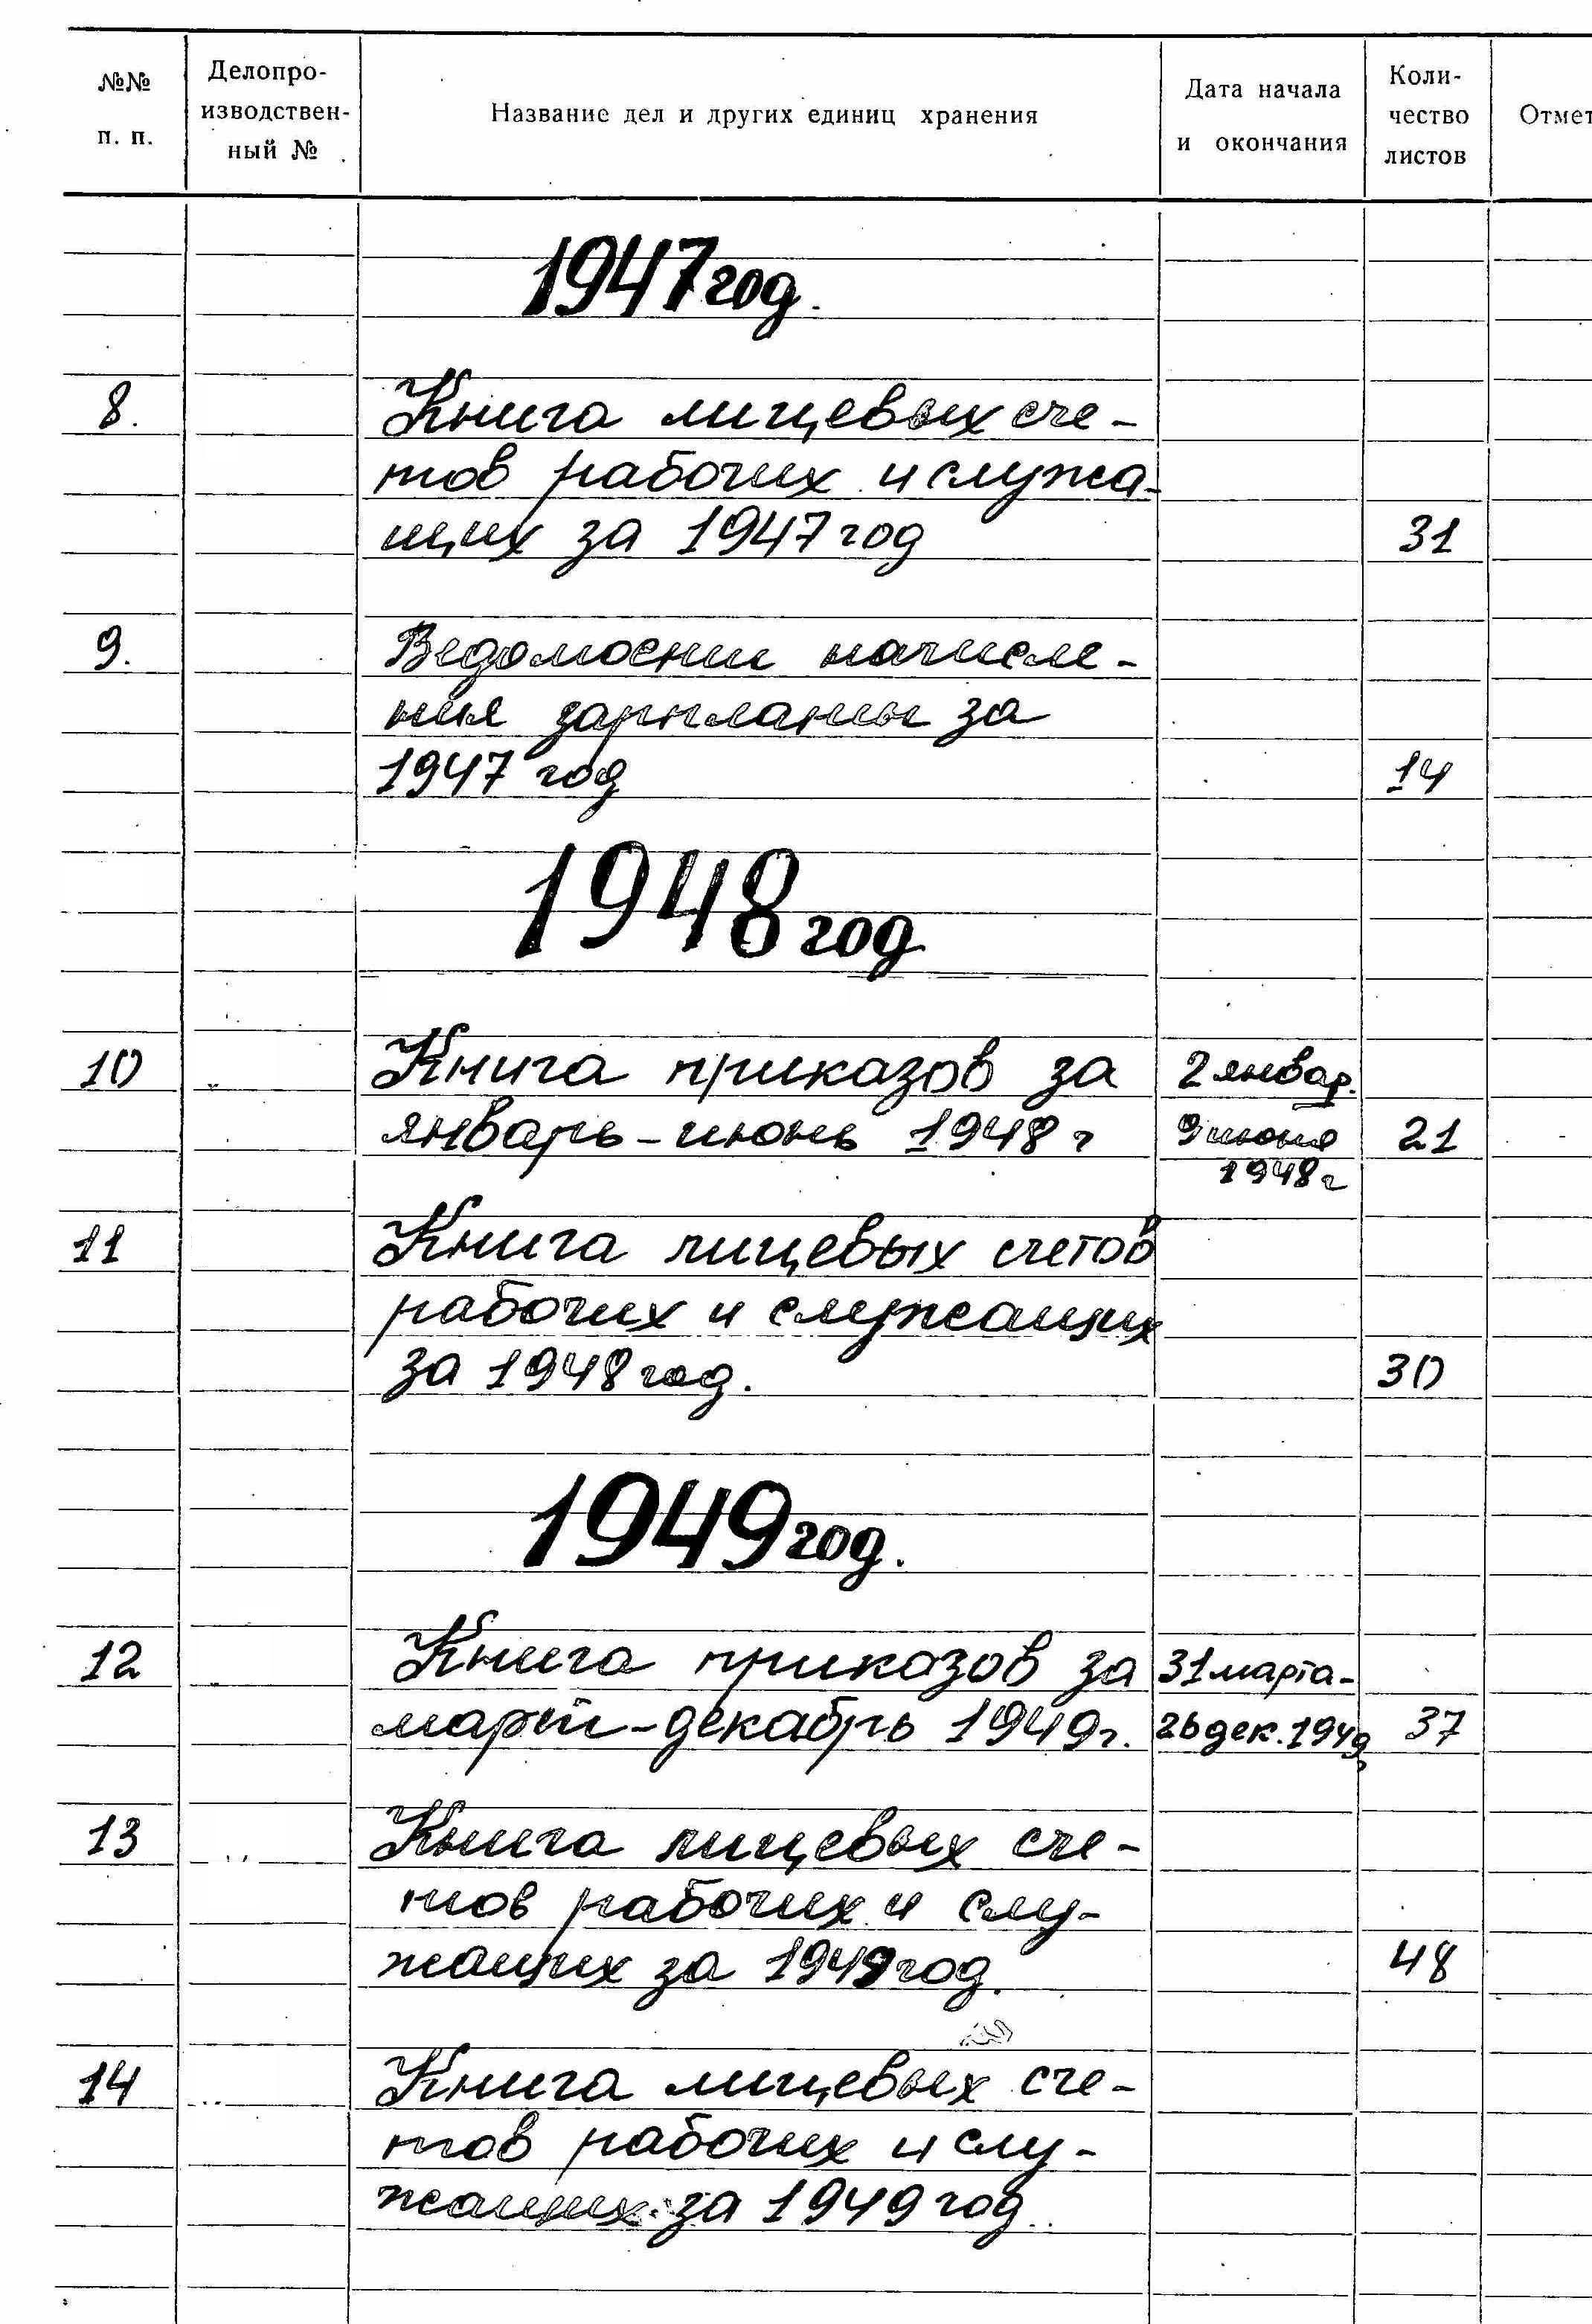 №№ п. п.
Делопро-
изводствен-
ный №
Название дел и других единиц хранения
Дата начала
и окончания
Коли-
чество
листов
Отмет
1947 год.
8. Книга лицевых сче-
тов рабочих и служа-
щих за 1947 год 31
9. Ведомости начисле-
ния зарплаты за
1947 год 14
1948 год
10 Книга приказов за 2 январ.
январь-июнь 1948 г 9 июня 21
1948 г
11 Книга лицевых счетов
рабочих и служащих
за 1948 год. 30
1949 год.
12 Книга приказов за 31 марта-
март-декабрь 1949 г. 26 дек. 1949 37
13 Книга лицевых сче-
тов рабочих и слу-
жащих за 1949 год. 48
14 Книга лицевых сче-
тов рабочих и слу-
жащих за 1949 год